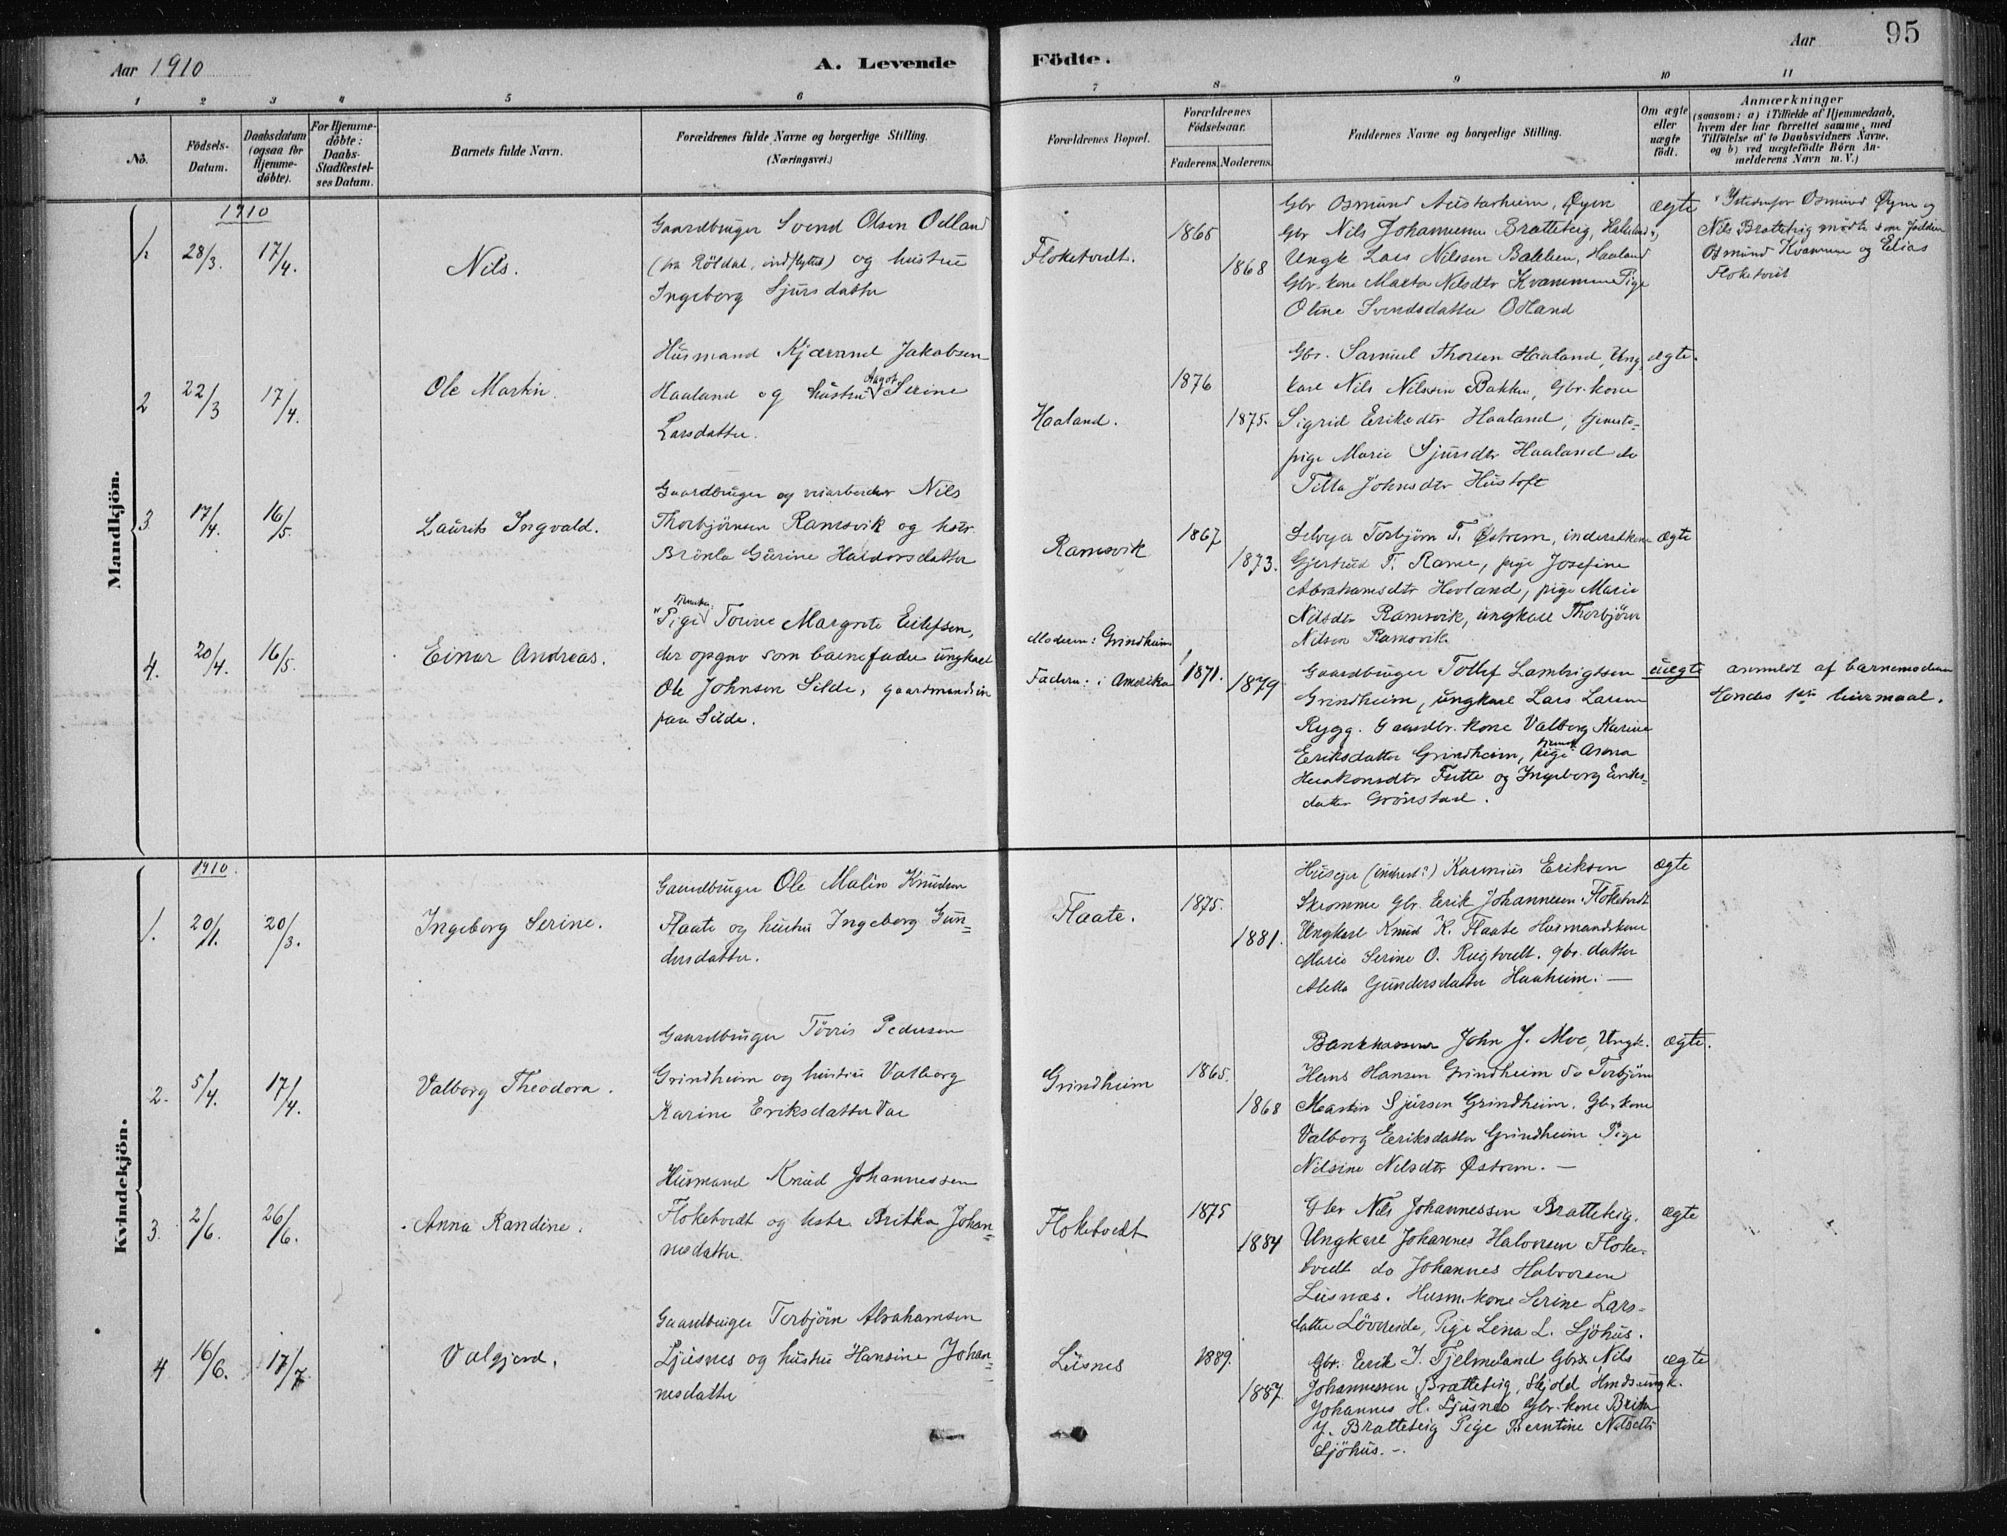 Aar 1910
A. Levende
Födte.
Aar
95
1 2 3 4 5 6 7 8 9 10 11
No.
Födsels-
Datum.
Daabsdatum
(ogsaa for
Hjemme-
döbte).
For Hjemme-
döbte:
Daabs-
StadfRestel-
ses Datum.
Barnets fulde Navn.
Forældrenes fulde Navne og borgerlige Stilling.
(Næringsvei.)
Forældrenes Bopæl.
Forældrenes
Födselsaar.
Faderens. Moderens.
Faddernes Navne og borgerlige Stilling.
Om ægte
eller
uægte
födt.
Anmærkninger
(saasom: a) i Tilfælde af Hjemmedaab,
hvem der har forrettet samme, med
Tilföielse af to Daabsvidners Navne,
og b) ved uægtefödte Börn An-
melderens Navn m. V.)
Mandkjön.
1910
1.
28/3.
17/4.
Nils.
Gaardbruger Svend Olsen Odland
(fra Röldal, indflyttet) og hustru
Ingeborg Sjursdatter
Floketvedt.
1865
1868
Gbr Osmund Austarheim, Øyen
Gbr Nils Johannesen Bratteteig,
Ungk Lars Nilssen Bakken, Haaland
Gbr. kone Marta Nilsdtr Kvammen Pige
Oline Svendsdatter Odland
ægte
Istedenfor Osmund Øyen og
Nils Bratteteig mødte som faddere
Osmund Kvammen og Elias
Floketveit
2
22/3
17/4.
Ole Martin.
Husmand Kjærand Jakobsen
Haaland og hustru Aagot Serine
Larsdatter.
Haaland.
1876
1875.
Gbr. Samuel Thorsen Haaland, Ung-
karl Nils Nilssen Bakke, Gbr. kone
Sigrid Eriksdtr Haaland, tjeneste-
pige Marie Sjursdtr Haaland do
Tilla Johnsdtr Hustoft
ægte.
3
17/4.
16/5.
Laurits Ingvald.
Gaardbruger og veiarbeider Nils
Thorbjörnsen Ramsvik og hstr.
Brönla Gurine Haldorsdatter
Ramsvik
1867
1873.
Selveier Torbjörn T. Østrem, inderstkone
Gjertrud T. Rame, pige Josefine
Abrahamsdtr Hovland, pige Marie
Nilsdtr Ramsvik, ungkarl Thorbjörn
Nilsen Ramsvik
ægte
4.
20/4.
16/5.
Einar Andreas.
Pige Torine Margrete Eilefsen,
der opgav som barnefader ungkarl
Ole Johnsen Silde, gaardmandssøn
paa Silde.
Moderen: Grindheim
Faderen: i Amerika
1871.
1879
Gaardbruger Tollef Lambrigtsen
Grindheim, ungkarl Lars Larsen
Rygg. Gaardbr. kone Valborg Karine
Eriksdatter Grindheim, pige Anna
Haakonsdtr Tutte og Ingeborg Eriks-
datter Grönstad.
uægte
anmeldt af barnemoderen
Hendes 1ste leiermaal.
Kvindekjön.
1910.
1.
20/1.
20/3.
Ingeborg Serine.
Gaardbruger Ole Malin Knudsen
Flaate og hustru Ingeborg Gun-
dersdatter.
Flaate.
1875.
1881.
Huseier (inderst?) Rasmus Eriksen
Skromme Gbr. Erik Johannesen Floketvedt
Ungkarl Knud K. Flaate Husmandskone
Marie Serine O. Rugtvedt. gbr. datter
Aletta Gundersdatter Haaheim.
ægte
2.
5/4.
17/4.
Valborg Theodora.
Gaardbruger Törris Pedersen
Grindheim og hustru Valborg
Karine Eriksdatter Vae
Grindheim
1865.
1868
Bankkasserer John J. Moe, Ungk.
Hans Hansen Grindheim do Torbjörn
Martin Sjursen Grindheim. Gbr. kone
Valborg Eriksdatter Grindheim Pige
Nilsine Nilsdtr Østrem.
ægte.
3.
2/6.
26/6.
Anna Randine.
Husmand Knud Johannessen
Floketvedt og hstr. Britha Johan-
nesdatter
Floketvedt
1875
1884
Gbr Nils Johannessen Bratteteig.
Ungkarl Johannes Halvorsen Floke-
tvedt do Johannes Halvorsen
Lusnæs. Husm. kone Serine Lars-
datter Lövereide, Pige Lina L. Sjöhus.
ægte
4
16/6.
17/7
Valgjerd.
Gaardbruger Torbjörn Abrahamsen
Ljusnes og hustru Hansine Johan-
nesdatter
Lusnes
1889.
1887.
Gbr. Erik I. Fjelmeland Gbr Nils
Johannessen Bratteteig, Skjold ungk.
Johannes H. Ljusnes Gbr. kone Britha
J. Bratteteig Pige Berntine Nilsdtr
Sjöhus.
ægte